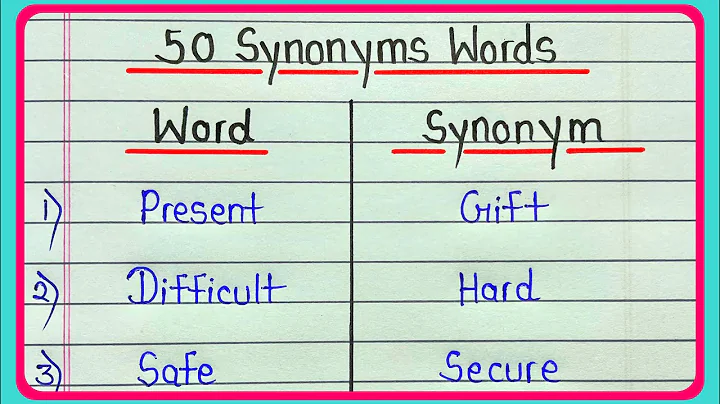 50 Synonyms Words
Word Synonym
1) Present Gift
2) Difficult Hard
3) Safe Secure